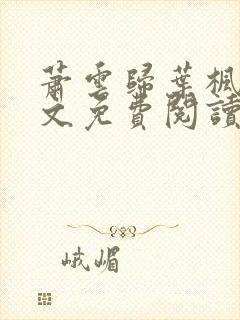 蕭雲歸葉楓
文免費閱讀
峨嵋